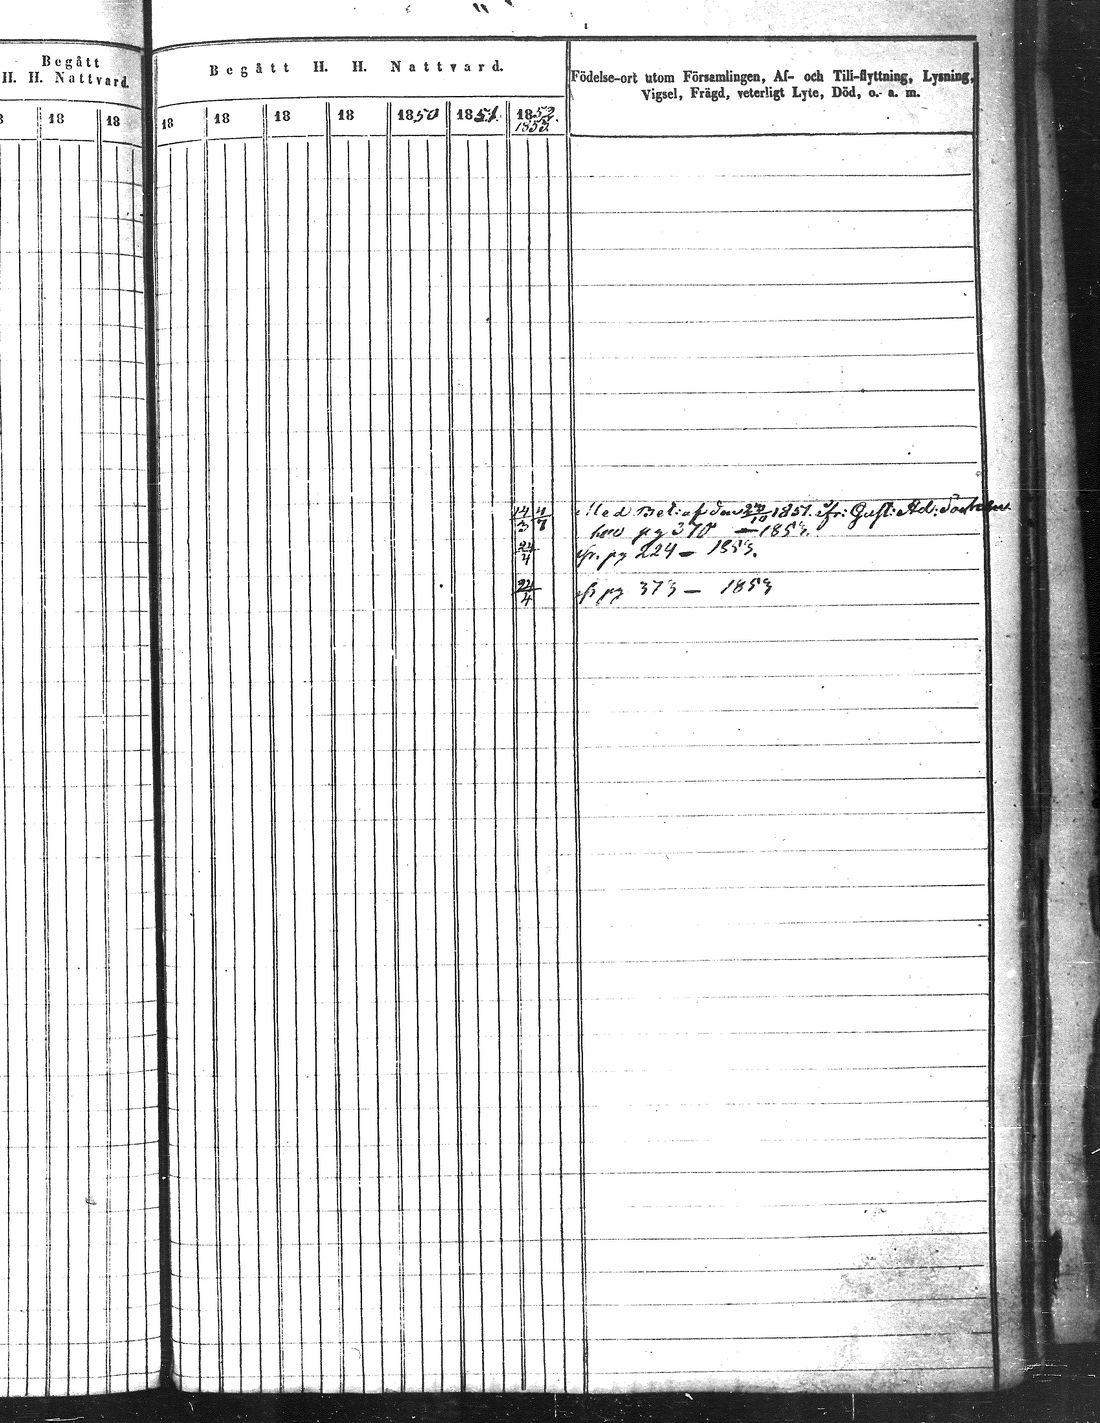 Begått
H. H. Nattvard.
18 18
Begått H. H. Nattvard.
18 18 18 18 1850 1851 1852.
1853.
Födelse-ort utom Församlingen, Af- och Till-flyttning, Lysning,
Vigsel, Frägd, veterligt Lyte, Död, o. a. m.
14/3 4/7 Med Bet: af den 22/10 1851. fr: Gust: Ad:
pg 370 — 1853.
24/4 fr. pg 224 — 1853.
24/4 fr pg 373 — 1853